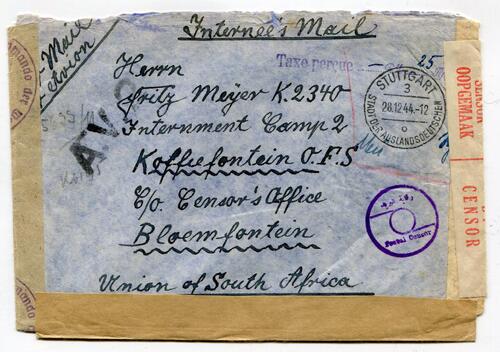 Internee's Mail
Mail
Taxe percue 25
Herrn
Fritz Meyer K.2340
Internment Camp 2
Koffiefontein O.F.S
C/o Censor's Office
Bloemfontein
Union of South Africa
STUTTGART
3
28.12.44.-12
STADT DER AUSLANDSDEUTSCHEN
Postal Censor
OOPGEMAAK
CENSOR